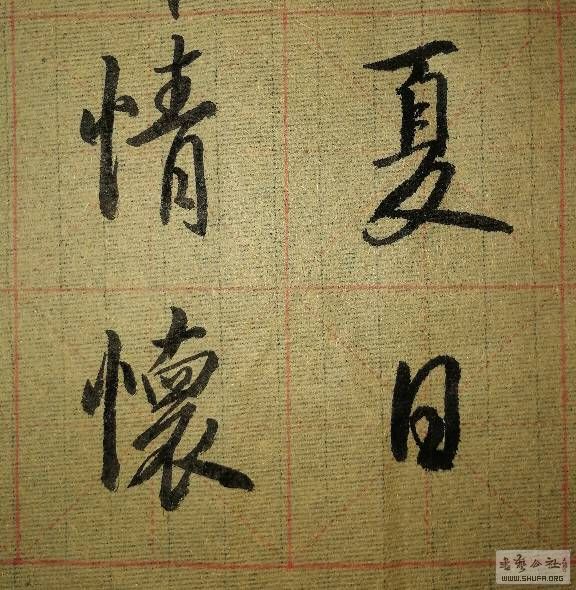 夏日
情懷
书艺公社
WWW.SHUFA.ORG